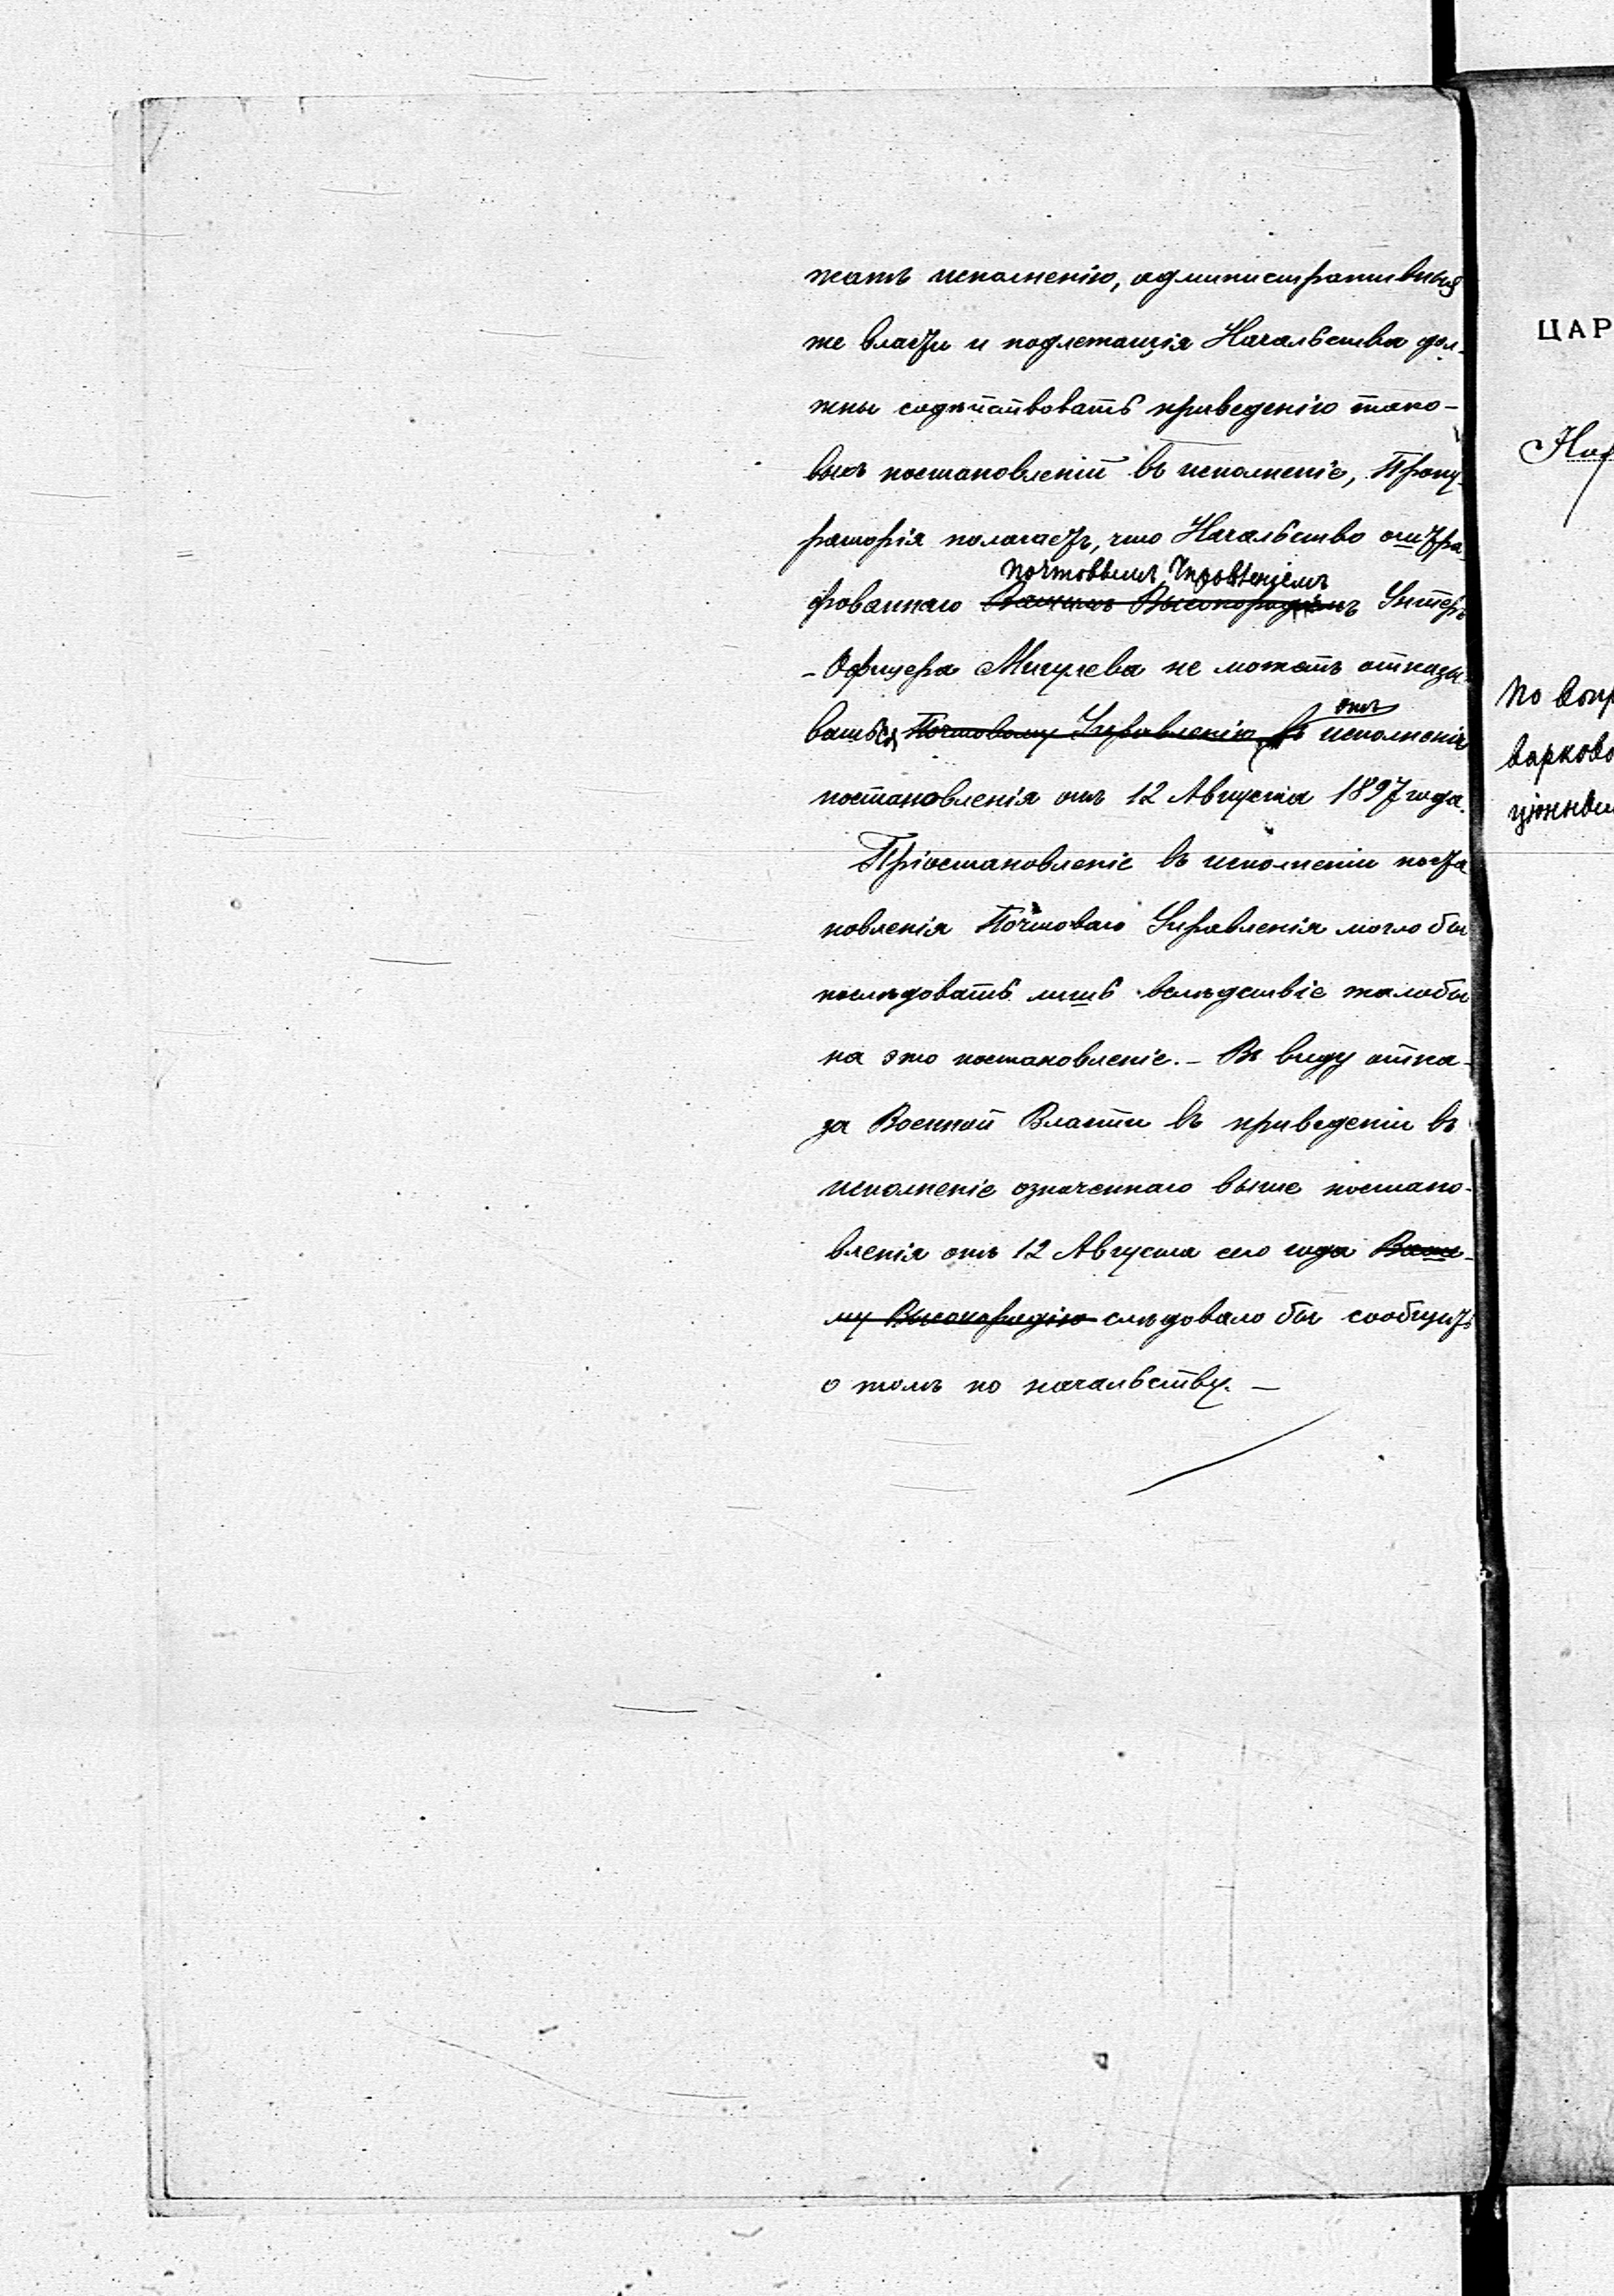 жатъ исполненію, административныя
же власти и подлежащія Начальства дол-
жны содѣйствовать приведенію тако-
выхъ постановленій въ исполненіе, Проку-
раторія полагаетъ, что Начальство оштра-
Почтовымъ Управленіемъ
фованнаго Вашимъ Высокородіемъ Унтеръ
-Офицера Мигулева не можетъ отказы-
отъ
ваться Почтовому Управленію въ исполненія
постановленія отъ 12 Августа 1897 года.
Пріостановленіе въ исполненіи поста
новленія Почтоваго Управленія могло бы
послѣдовать лишь вслѣдствіе жалобы
на это постановленіе. – Въ виду отка-
за Военной Власти въ приведеніи въ
исполненіе означеннаго выше постано-
вленія отъ 12 Августа сего года Ваше-
му Высокородію слѣдовало бы сообщить
о томъ по начальству. –
ЦАР
по вопр
варково
ціонны